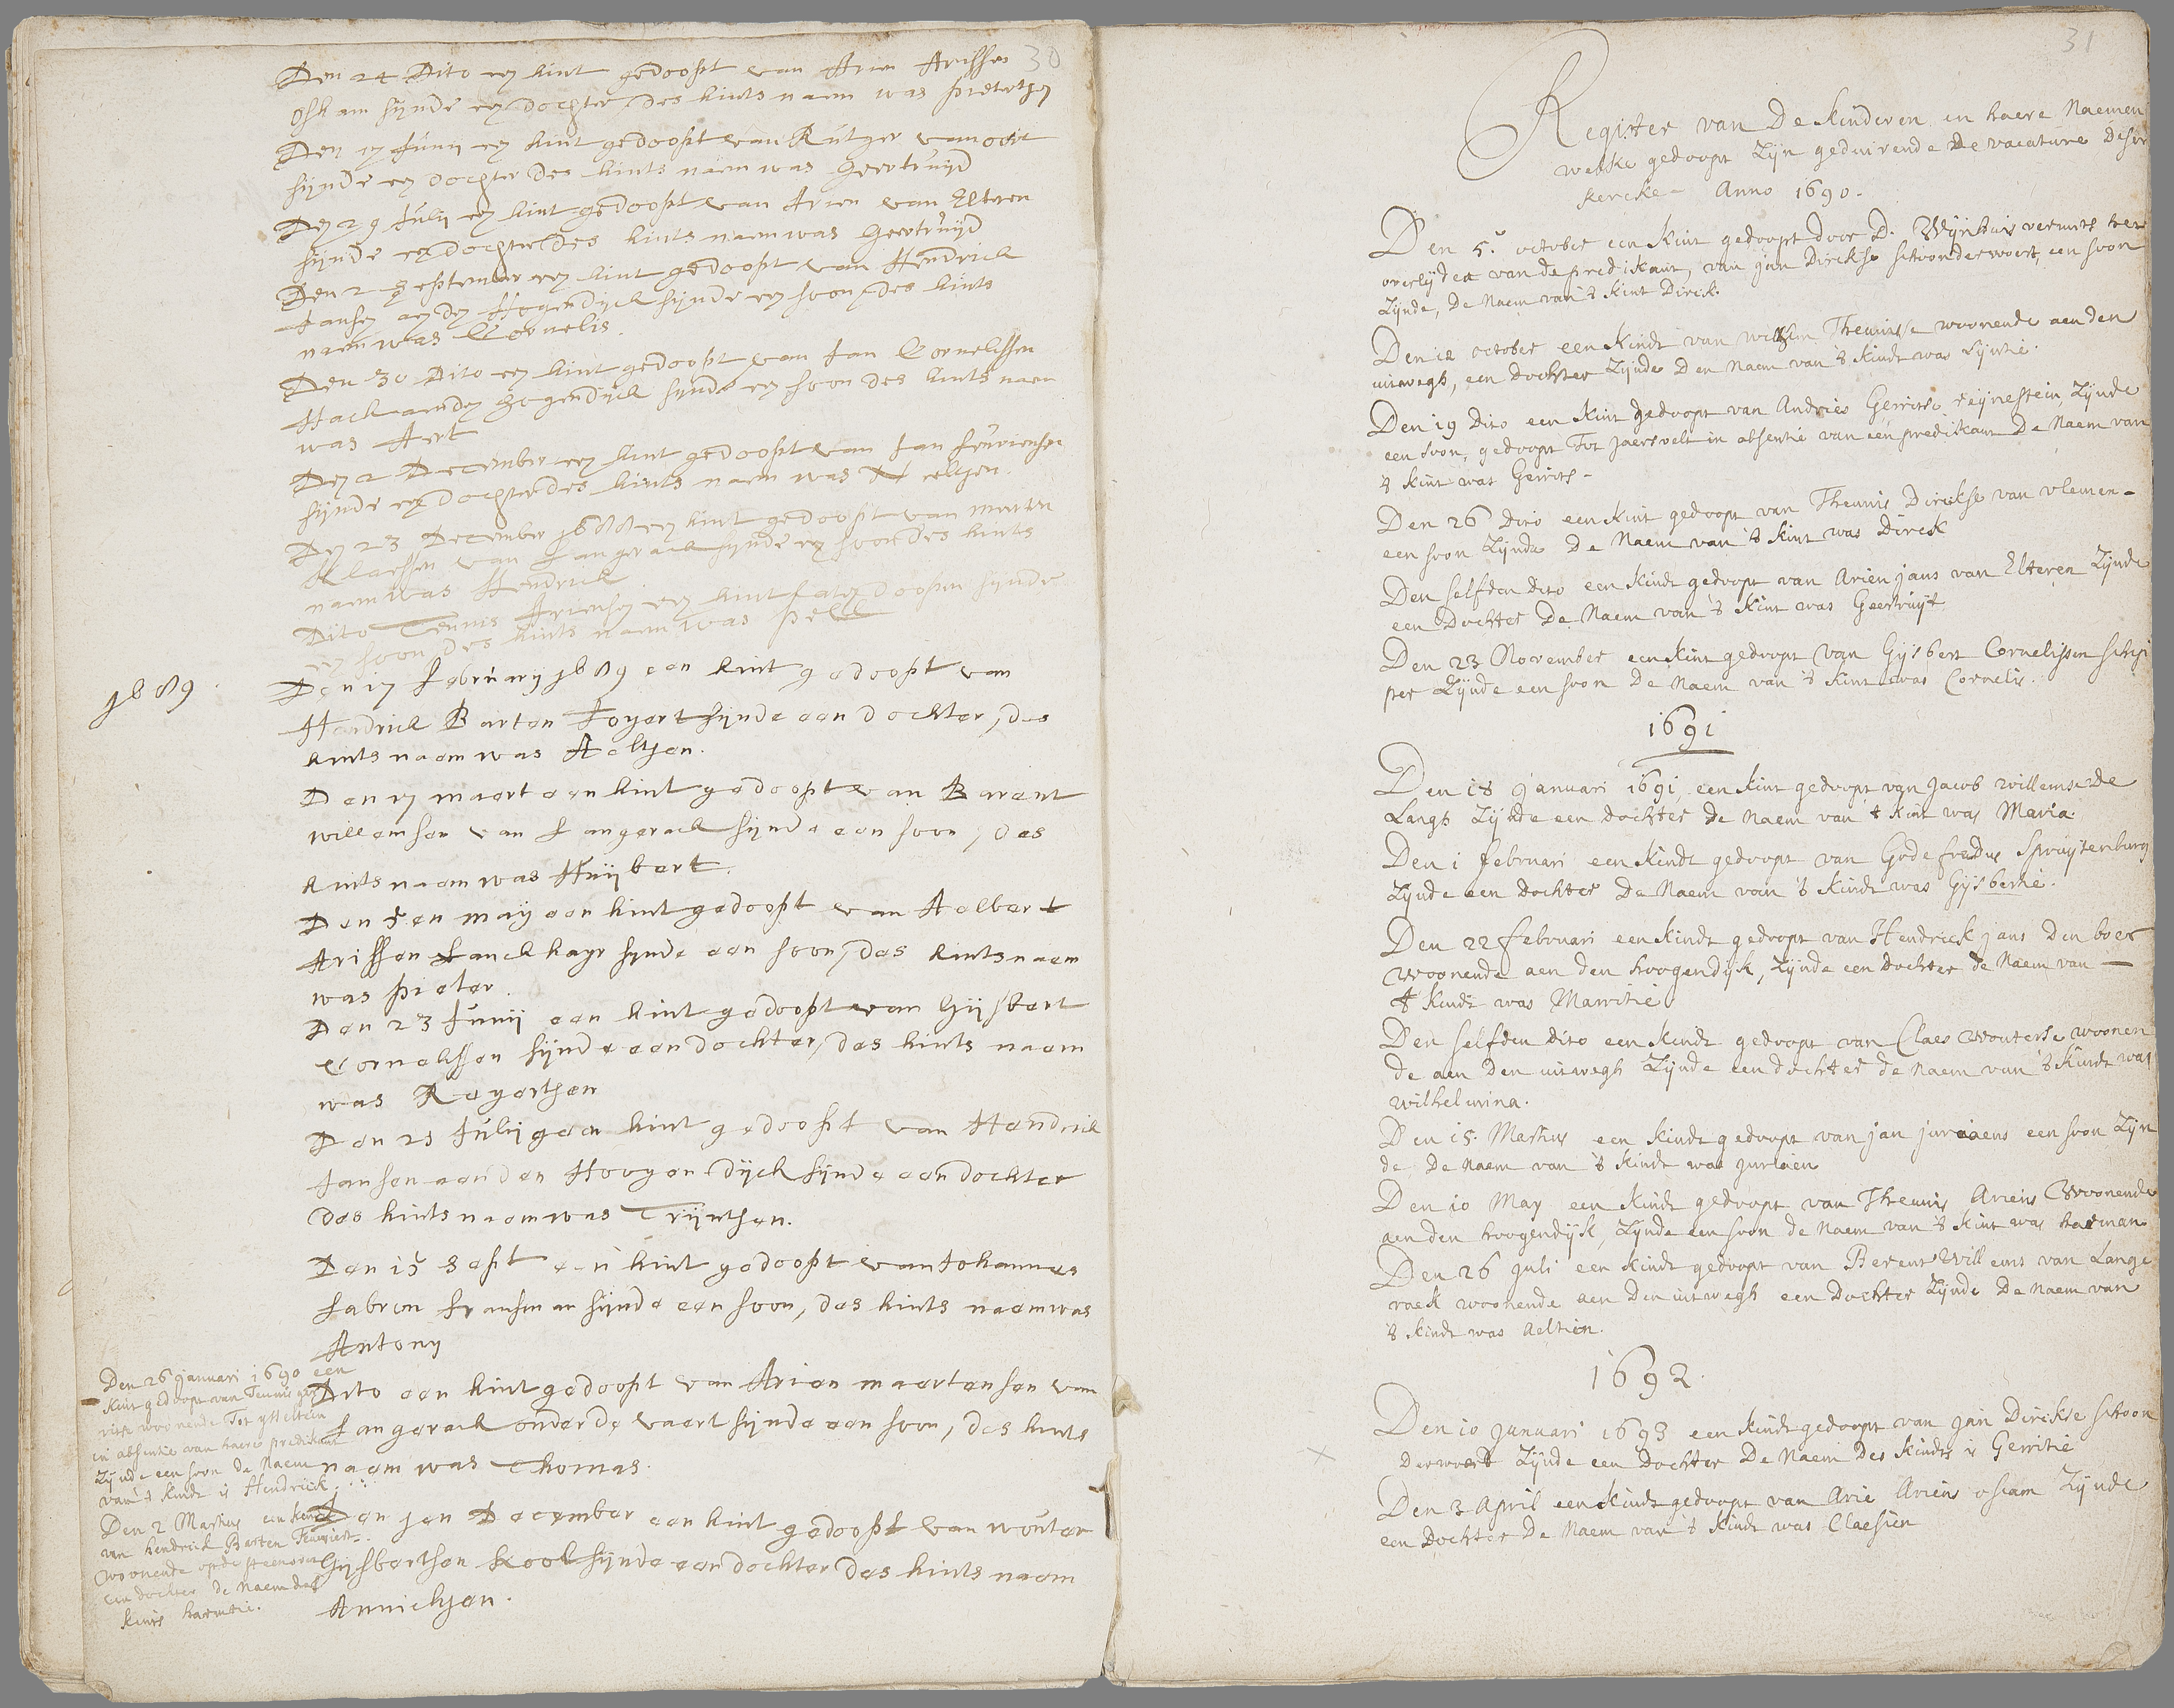 30
Den 24 Dito een kint gedoopt van Arien Arissen
Oskam sijnde een dochter, des kints naem was Pietertgen
Den 17 Junij een kint gedoopt van Rutger van oort
sijnde een dochter des kints naem was Geertruijd
Den 29 Julij een kint gedoopt van Arien van Elteren
sijnde een dochter des kints naem was Geertruijd
Den 2 September een kint gedoopt van Hendrick
Jansen aen den Hogendijck sijnde een soon, des kints
naem was Cornelis.
Den 30 Dito een kint gedoopt van Jan Cornelissen
Hack aenden Hogendijck sijnde een soon des kints naem
was Aert
Den 2 December een kint gedoopt van Jan
sijnde een dochter des kints naem was Neeltgen.
Den 23 December 1688 een kint gedoopt van Marten
Klaessen van Langerack sijnde een soon des kints
naem was Hendrick
Dito Teunis Ariensen een kint laten doopen sijnde
een soon, des kints naem was Pell
1689.
Den 17 Februarij 1689 een kint gedoopt van
Hendrick Barten sijnde een dochter, des
kints naem was Aeltjen.
Den 17 maert een kint gedoopt van Barent
willemsen van Langerack sijnde een soon, des
kints naem was Huijbert.
Den 5en maij een kint gedoopt van Aelbert
Arissen Lanckhayr sijnde een soon, des kints naem
was Pieter.
Den 23 Junij een kint gedoopt van Gijsbert
Cornelissen sijnde een dochter, des kints naem
was Reyerthen
Den 25 Julij een kint gedoopt van Hendrick
Jansen aen den Hoogen dijck sijnde een dochter
des kints naem was Trijnthen.
Den 15 Sept een kint gedoopt van Johannes
Fabron sijnde een soon, des kints naem was
Antony
Dito een kint gedoopt van Arien maertensen van
Langerack onder de vaert sijnde een soon, des kints
naem was Thomas.
Den jen December een kint gedoopt van wouter
Gijsbertsen Kool sijnde een dochter des kints naem
Annichjen.
Den 26 januari 1690 een
kint gedoopt van Teunis ger
ritse woonende Tot ysselstein
in absentie van haere predikant
Zijnde een soon De Naem
van 't kindt is Hendrick.
Den 2 Martius een kindt
van Hendrick Barten
woonende op de steenoven
een dochter de Naem des
kints harmtie.
31
Register van De kinderen en haere Naemen
welke gedoopt Zijn geduirende De vacature deser
kercke - Anno 1690.
Den 5. october een kint gedoopt door D. Wijnhuis vermits het
overlijden van de predikant, van jan Dirckse schoonderwoert, een soon
Zijnde, De Naem van 't kint Dirck.
Den 12 october een kindt van willem Theunisse woonende aen den
uitwegh, een dochter Zijnde Den Naem van 't kindt was Lijntie.
Den 19 Dito een kint gedoopt van Andries Gerritse reijnestein Zijnde
een soon, gedoopt Tot jaersvelt in absentie van een predikant De Naem van
't kint was Gerrits -
Den 26 Dito een kint gedoopt van Theunis Dirckse van vlemen -
een soon Zijnde De Naem van 't kint was Dirck
Den selfden dito een kindt gedoopt van Arien jans van Elteren Zijnde
een Dochter De Naem van 't kint was Geertruijt
Den 23 November een kint gedoopt van Gijsbert Cornelissen schip
per Zijnde een soon De Naem van 't kint was Cornelis.
1691
Den 18 januari 1691 een kint gedoopt van jacob willemse De
Langh Zijnde een dochter de Naem van 't kint was Maria.
Den 1 februari een kindt gedoopt van Godefredus Spruijtenburg
Zijnde een dochter De Naem van 't kindt was Gijsbertie.
Den 22 februari een kindt gedoopt van Hendrick jans Den boer
woonende aen den hoogendijk, Zijnde een dochter de Naem van —
't kindt was Marritie
Den selfden dito een kindt gedoopt van Claes Wouterse woonen
de aen Den uitwegh Zijnde een dochter de Naem van 't kindt was
wilhelmina.
Den 15. Martius een kindt gedoopt van jan juriaens een soon Zijn
de De Naem van 't kindt was juriaen
Den 10 May een kindt gedoopt van Theunis Ariens Woonende
aen den hoogendijk, Zijnde een soon de Naem van 't kint was harman
Den 26 juli een kindt gedoopt van Berent Willems van Lange
raek woonende aen Den uitwegh een Dochter Zijnde De Naem van
't kindt was Aeltien.
1692.
Den 10 januari 1693 een kindt gedoopt van jan Dirckse schoon
derwoert Zijnde een Dochter De Naem Des kindts is Gerritie
Den 3 April een kindt gedoopt van Arie Ariens oscam Zijnde
een Dochter De Naem van 't kindt was Claesien